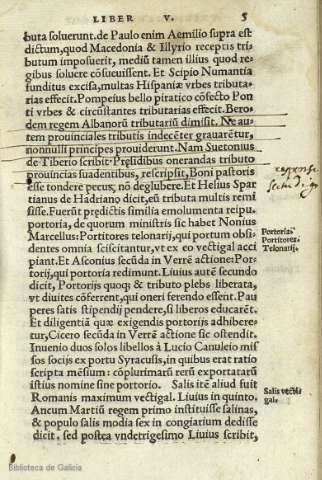 LIBER V. 5
buta soluerunt. de Paulo enim Aemilio supra est
dictum, quod Macedonia & Illyrio receptis tri-
butum imposuerit, mediũ tamen illius quod re-
gibus soluere cõsueuissent. Et Scipio Numantia
funditus excisa, multas Hispaniæ vrbes tributa-
rias effecit. Pompeius bello piratico cõfecto Pon
ti vrbes & circũstantes tributarias effecit. Bero-
dem regem Albanorũ tributariũ dimisit. Ne au-
tem prouinciales tributis indecẽter grauarẽtur,
nonnulli principes prouiderunt. Nam Suetonius
de Tiberio scribit: Præsidibus onerandas tributo
prouincias suadentibus, rescripsit, Boni pastoris
esse tondere pecus, nõ deglubere. Et Helius Spar
tianus de Hadriano dicit, eũ tributa multis remi
sisse. Fuerũt prædictis similia emolumenta reipu.
portoria, de quorum ministris sic habet Nonius
Marcellus: Portitores telonarij, qui portum obsi-
dentes omnia sciscitantur, vt ex eo vectigal acci
piant. Et Asconius secũda in Verrẽ actione: Por-
titorij, qui portoria redimunt. Liuius autẽ secundo
dicit, Portorijs quoq; & tributo plebs liberata,
vt diuites cõferrent, qui oneri ferendo essent. Pau
peres satis stipendij pendere, si liberos educarẽt.
Et diligentiã quæ exigendis portorijs adhibere-
tur, Cicero secũda in Verrẽ actione sic ostendit.
Inuenio duos solos libellos à Lucio Canuleio mis
sos socijs ex portu Syracusis, in quibus erat ratio
scripta mẽsium: cõplurimarũ rerũ exportatarũ
istius nomine sine portorio. Salis itẽ aliud fuit
Romanis maximum vectigal. Liuius in quinto.
Ancum Martiũ regem primo instituisse salinas,
& populo salis modia sex in congiarium dedisse
dicit, sed postea vndetrigesimo Liuius scribit,
Portoria.
Portitores.
Telonarij.
Salis vecti-
gal.
Biblioteca de Galicia